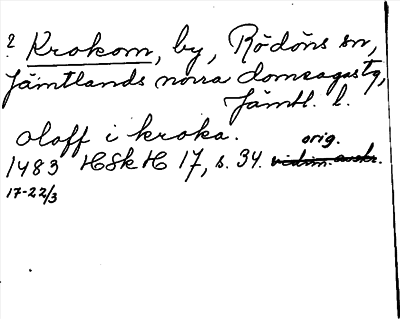 ? Krokom, by, Rödöns sn,
Jämtlands norra domsagastg,
Jämtl. l.
oloff i kroka.
orig.
1483 HSkH 17, s. 34. vidim. avskr.
17-22/3